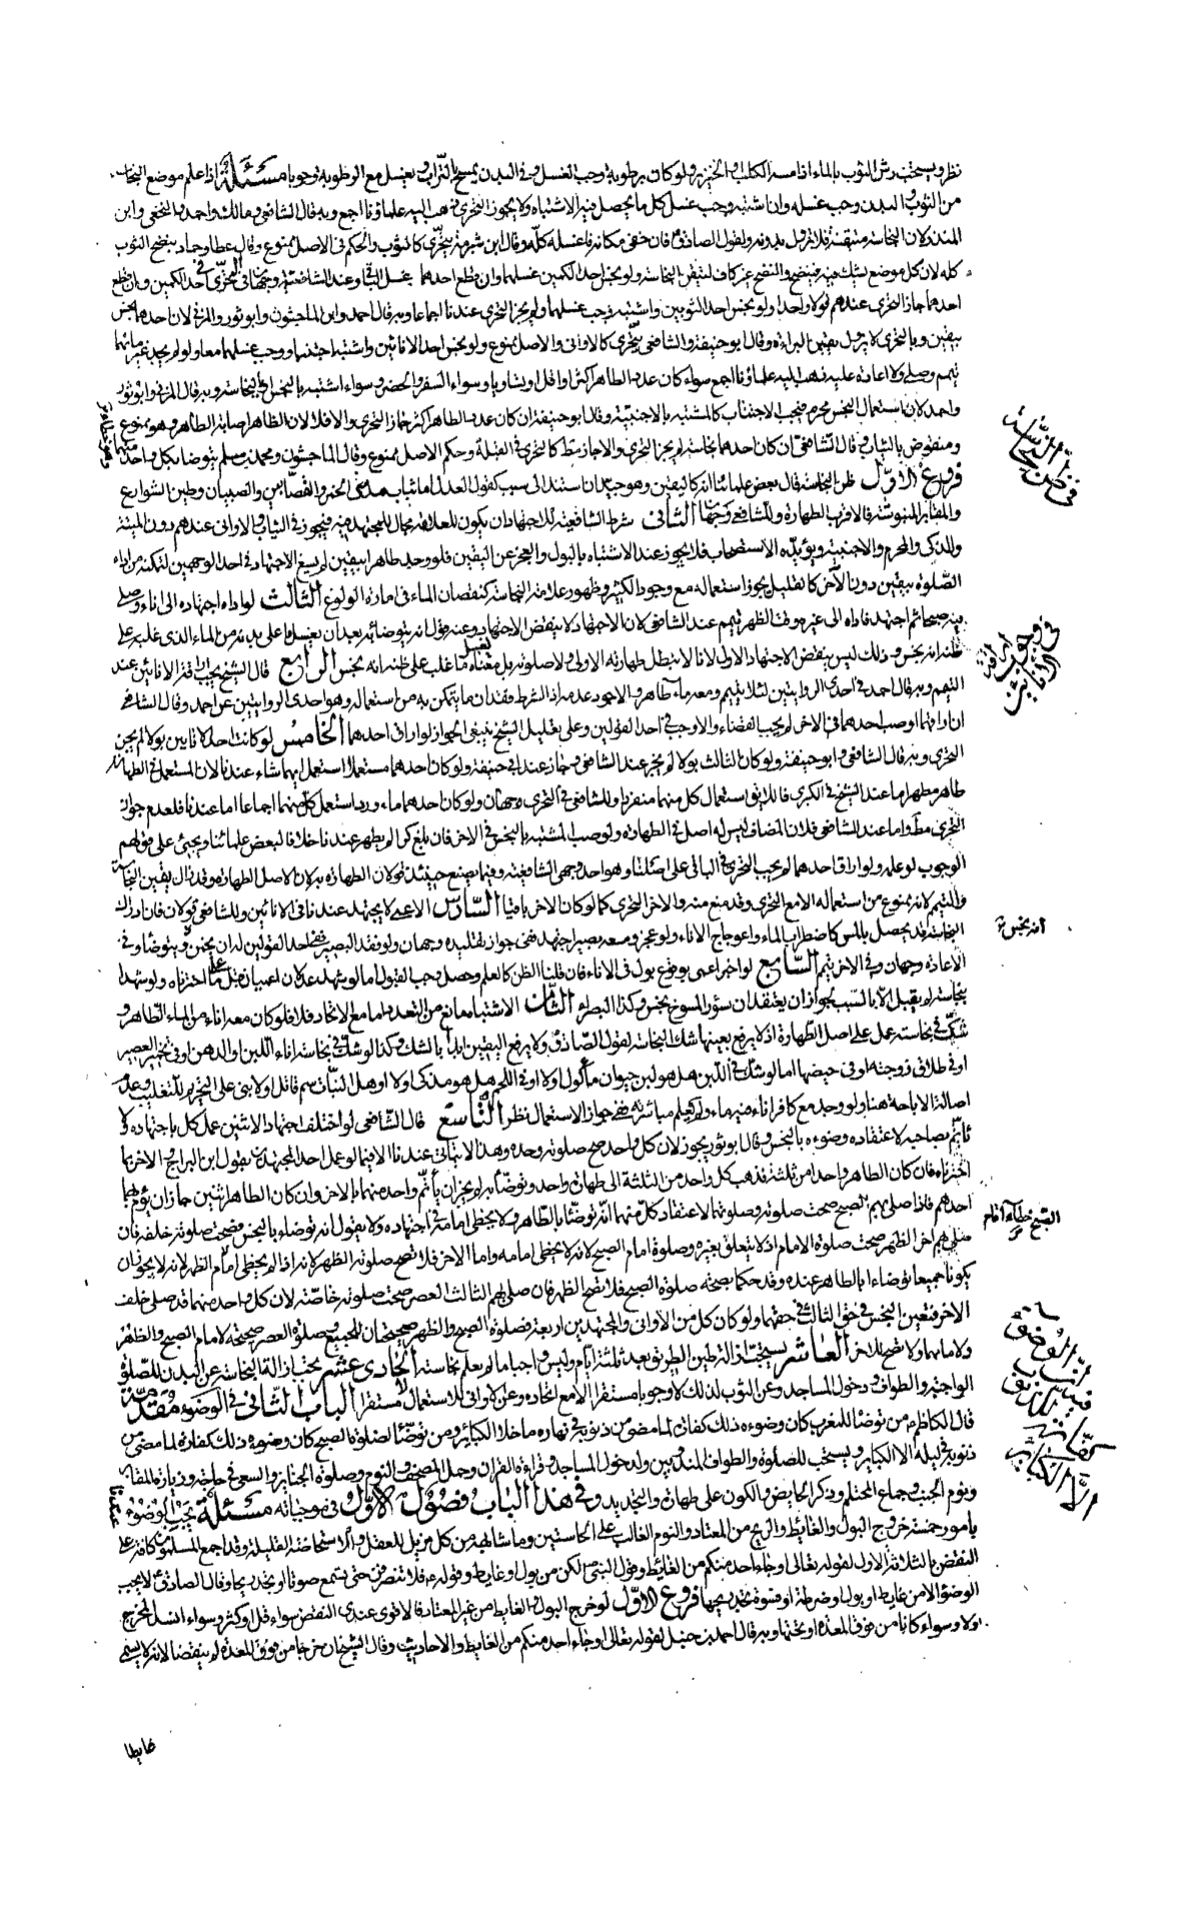 نظر ويستحب رش الثوب بالماء اذا مسه الكلب او الخنزير ولو كان برطوبة وجب الغسل وفى البدن يمسح بالتراب ويغسل مع الرطوبة وجوبا مسئلة اذا علم موضع النجاسة
من الثوب والبدن وجب غسله وان اشتبه وجب غسل كل ما يحصل فيه الاشتباه ولا يجوز التحرى ذهب اليه علماؤنا اجمع وبه قال الشافعى ومالك واحمد والنخعى وابن
المنذر لان النجاسة متيقنة فلا تزول بدونه ولقول الصادق فان خفى مكانه فاغسله كله وقال ابن شبرمة يتحرى كالثوب والحكم فى الاصل ممنوع وقال عطا وحماد ينضح الثوب
كله لان كل موضع يشك فيه فينضح والنضح غير كاف لتيقن النجاسة ولو نجس احد الكمين غسلهما وان قطع احدهما غسل الباقى وعند الشافعية وجهان فى التحرى فى احد الكمين وان قطع
احدهما جاز التحرى عندهم قولا واحدا ولو نجس احد الثوبين واشتبه وجب غسلهما ولم يجز التحرى عندنا اجماعا وبه قال احمد وابن الماجشون وابو ثور والمزنى لان احدهما نجس
بيقين وبالتحرى لا يزيل يقين البراءة وقال ابو حنيفة والشافعى يتحرى كالاوانى والاصل ممنوع ولو نجس احد الانائين واشتبه اجتنبا ووجب غسلهما معا ولو لم يجد غير مائهما
تيمم وصلى ولا اعادة عليه ذهب اليه علماؤنا اجمع سواء كان عدد الطاهر اكثر او اقل او يتساويا وسواء السفر والحضر وسواء اشتبه بالنجس او بالنجاسة وبه قال المزنى وابو ثور
واحمد لان استعمال النجس محرم فيجب الاجتناب كالمشتبه بالاجنبية وقال ابو حنيفة ان كان عدد الطاهر اكثر جاز التحرى والا فلا لان الظاهر اصابة الطاهر وهو ممنوع
ومنقوض بالثياب وقال الشافعى ان كان احدهما نجاسة لم يجز التحرى والا جاز مط كالتحرى فى القبلة وحكم الاصل ممنوع وقال الماجشون ومحمد بن مسلم يتوضا بكل واحد منهما
فروع الاول ظن النجاسة قال بعض علمائنا انه كاليقين وهو جيد ان استند الى سبب كقول العدل اما ثياب مدمنى الخمر والقصابين والصبيان وطين الشوارع
والمقابر المنبوشة فالاقرب الطهارة وللشافعى وجهان الثانى شرط الشافعية للاجتهاد ان يكون للعلامة مجال للمجتهد فيه فيجوز فى الثياب والاوانى عندهم دون الميتة
والمذكى والمحرم والاجنبية ويؤيده الاستصحاب فلا يجوز عند الاشتباه بالبول والعجز عن اليقين فلو وجد طاهرا بيقين لم يسغ الاجتهاد فى احد الوجهين لتمكنه من اداء
الصلوة بيقين دون الآخر كالتقليل يجوز استعماله مع وجود الكثير وظهور علامة النجاسة كنقصان الماء فى امارة الولوغ الثالث لو اداه اجتهاده الى اناء وصلى
فيه صبحا ثم اجتهد فاداه الى غيره وقت الظهر تيمم عند الشافعى لان الاجتهاد لا ينقض الاجتهاد وعنه قول انه يتوضا به بعد ان يغسل ما على بدنه من الماء الذى غلب على
ظنه انه نجس وذلك ليس ينقض الاجتهاد الاول لانا لا نبطل طهارته الاولى ولا صلوته بل معناه ما غلب على ظنه انه نجس الرابع قال الشيخ يجب اراقة الانائين عند
التيمم وبه قال احمد فى احدى الروايتين لئلا يتيمم ومعه ماء طاهر والاجود عدمه اذ الشرط فقدان ما يتمكن به من استعماله وهو احدى الروايتين عن احمد وقال الشافعى
ان اراقهما او صب احدهما فى الاخر لم يجب القضاء والا وجب فى احد القولين وعلى تعليل الشيخ ينبغى الجواز لو اراق احدهما الخامس لو كانت احد الانائين بولا لم يجز
التحرى وبه قال الشافعى وابو حنيفة ولو كان الثالث بولا لم يجز عند الشافعى وجاز عند ابى حنيفة ولو كان احدهما مستعملا استعمل ايهما شاء عندنا لان المستعمل فى الطهارة
طاهر مطهر اما عند الشيخ فى الكبرى فاللائق استعمال كل منهما منفردا وللشافعى فى التحرى وجهان ولو كان احدهما ماء ورد استعمل كل منهما اجماعا اما عندنا فلعدم جواز
التحرى مطلقا واما عند الشافعى فلان المضاف ليس له اصل فى الطهارة ولو صب المشتبه بالنجس فى الاخر فان بلغ كرا لم يطهر عندنا خلافا لبعض علمائنا ويجئ على قولهم
الوجوب لو علمه ولو اراق احدهما لم يجب التحرى فى الباقى على اصلنا وهو احد وجهى الشافعية وفيما يصنع حينئذ قولان الطهارة به لان الاصل الطهارة وقد زال يقين النجاسة
والتيمم لانه ممنوع من استعماله الا مع التحرى وقد منع منه والاخر التحرى كما لو كان الاخر باقيا السادس الاعمى لا يجتهد عندنا فى الانائين وللشافعى قولان فان ادراك
النجاسة قد يحصل بالمس كاضطراب الماء واعوجاج الاناء ولو عجز ومعه بصير اجتهد ففى جواز تقليده وجهان ولو فقد البصير ففى احد القولين له ان يخمن ويتوضا وفى
الاعادة وجهان وفى الاخر تيمم السابع لو اخبر اعمى بوقوع بول فى الاناء فان قلنا الظن كالعلم وحصل وجب القبول اما لو شهد عدلان اعميان قبل على اخترناه ولو شهدا
بنجاسته لم يقبل الا بالسبب لجواز ان يعتقدا ان سؤر المسوخ نجس وكذا البصراء الثامن الاشتباه مانع من التعدد اما مع الاتحاد فلا فلو كان معه اناء من الماء الطاهر و
شك فى نجاسته عمل على اصل الطهارة اذ لا يرفع يقينها شك النجاسة لقول الصادق ولا يرفع اليقين ابدا بالشك وكذا لو شك فى نجاسة اناء اللبن او الدهن او فى تخمير العصير
او فى طلاق زوجته او فى حيضها اما لو شك فى اللبن هل هو لبن حيوان مأكول او لا او فى اللحم هل هو مذكى او لا او هل النبات سم قاتل او لا بنى على التحريم للتغليب وعدم
اصالة الاباحة هنا ولو وجد مع كافر اناء فيه ماء ولم يعلم مباشرته ففى جواز الاستعمال نظر التاسع قال الشافعى لو اختلف اجتهاد الاثنين عمل كل باجتهاده ولا
يأتم بصاحبه لاعتقاده وضوءه بالنجس وقال ابو ثور يجوز لان كل واحد صح صلوته وحده وهذا لا يتأتى عندنا الا فيما لو عمل احد المجتهدين بقول ابن البراج والاخر بما
اخترناه فان كان الطاهر واحدا من ثلثة فذهب كل واحد من الثلثة الى طهارة واحد وتوضأ به لم يجز ان يأتم واحد منهما بالاخر وان كان الطاهر اثنين جاز ان يؤم بهما
احدهم فاذا صلى بهم الصبح صحت صلوته وصلوتهما لاعتقاد كل منهما انه توضأ بالطاهر ولا يخطى امامه فى اجتهاده ولا يقول انه توضاء بالنجس فصحت صلوته خلفه فان
صلى بهم اخر الظهر صحت صلوة الامام اذ لا يتعلق بغيره وصلوة امام الصبح لانه لا يخطى امامه واما الاخر فلا تصح صلوته الظهر لانه اذا لم يخطى امام الظهر لانه لا يجوز ان
يكونا جميعا توضاءا بالطاهر عنده وقد حكما بصحة صلوة الصبح فلا تصح الظهر فان صلى بهم الثالث العصر صحت صلوته خاصة لان كل واحد منهما قد صلى خلف
الاخر فتعين النجس فى حق الثالث فى حقهما ولو كان كل من الاوانى والمجتهدين اربعة فصلوة الصبح والظهر صحيحتان للجميع وصلوة العصر صحيحة لامام الصبح والظهر
ولامامها ولا تصح للاخر العاشر يستحب ازالة طين الطريق بعد ثلثة ايام وليس واجبا ما لم يعلم نجاسته الحادى عشر يجب ازالة النجاسة عن البدن للصلوة
الواجبة والطواف ودخول المساجد وعن الثوب لذلك لا وجوبا مستقرا الا مع اتحاده وعن الاوانى للاستعمال لا مستقرا الباب الثانى فى الوضوء مقدمة
قال الكاظم من توضأ للمغرب كان وضوءه ذلك كفارة لما مضى من ذنوبه فى نهاره ما خلا الكبائر ومن توضأ لصلوة الصبح كان وضوءه ذلك كفارة لما مضى من
ذنوبه فى ليله الا الكبائر ويستحب للصلوة والطواف المندوبين ولدخول المساجد وقراءة القران وحمل المصحف والنوم وصلوة الجنائز والسعى فى حاجة وزيارة المقابر
ونوم الجنب وجماع المحتلم وذكر الحايض والكون على طهارة والتجديد وفى هذا الباب فصول الاول فى موجباته مسئلة يجب الوضوء
بامور خمسة خروج البول والغايط والريح من المعتاد والنوم الغالب على الحاستين وما شابهه من كل مزيل للعقل والاستحاضة القليلة وقد اجمع المسلمون كافة على
النقض بالثلاثة الاول لقوله تعالى او جاء احد منكم من الغايط وقول النبى ص لكن من بول او غايط وقوله ع فلا تنصرفن حتى تسمع صوتا او تجد ريحا وقال الصادق ع لا يجب
الوضوء الا من غايط او بول او ضرطة او فسوة تجد ريحها فروع الاول لو خرج البول والغايط من غير المعتاد فالاقوى عندى النقض سواء قل او كثر وسواء انسد المخرج
اولا وسواء كانا من فوق المعدة او تحتها وبه قال احمد بن حنبل لقوله تعالى او جاء احد منكم من الغايط والاحاديث وقال الشيخ ان خرجا من فوق المعدة لم ينقضا لانه لا يسمى
غايطا
فى ظن النجاسة
فى وجوب اراقة الانائين
انه نجس
الصبح خطاء امام
ان الوضوء
كفارة
الا الكبائر
عندنا